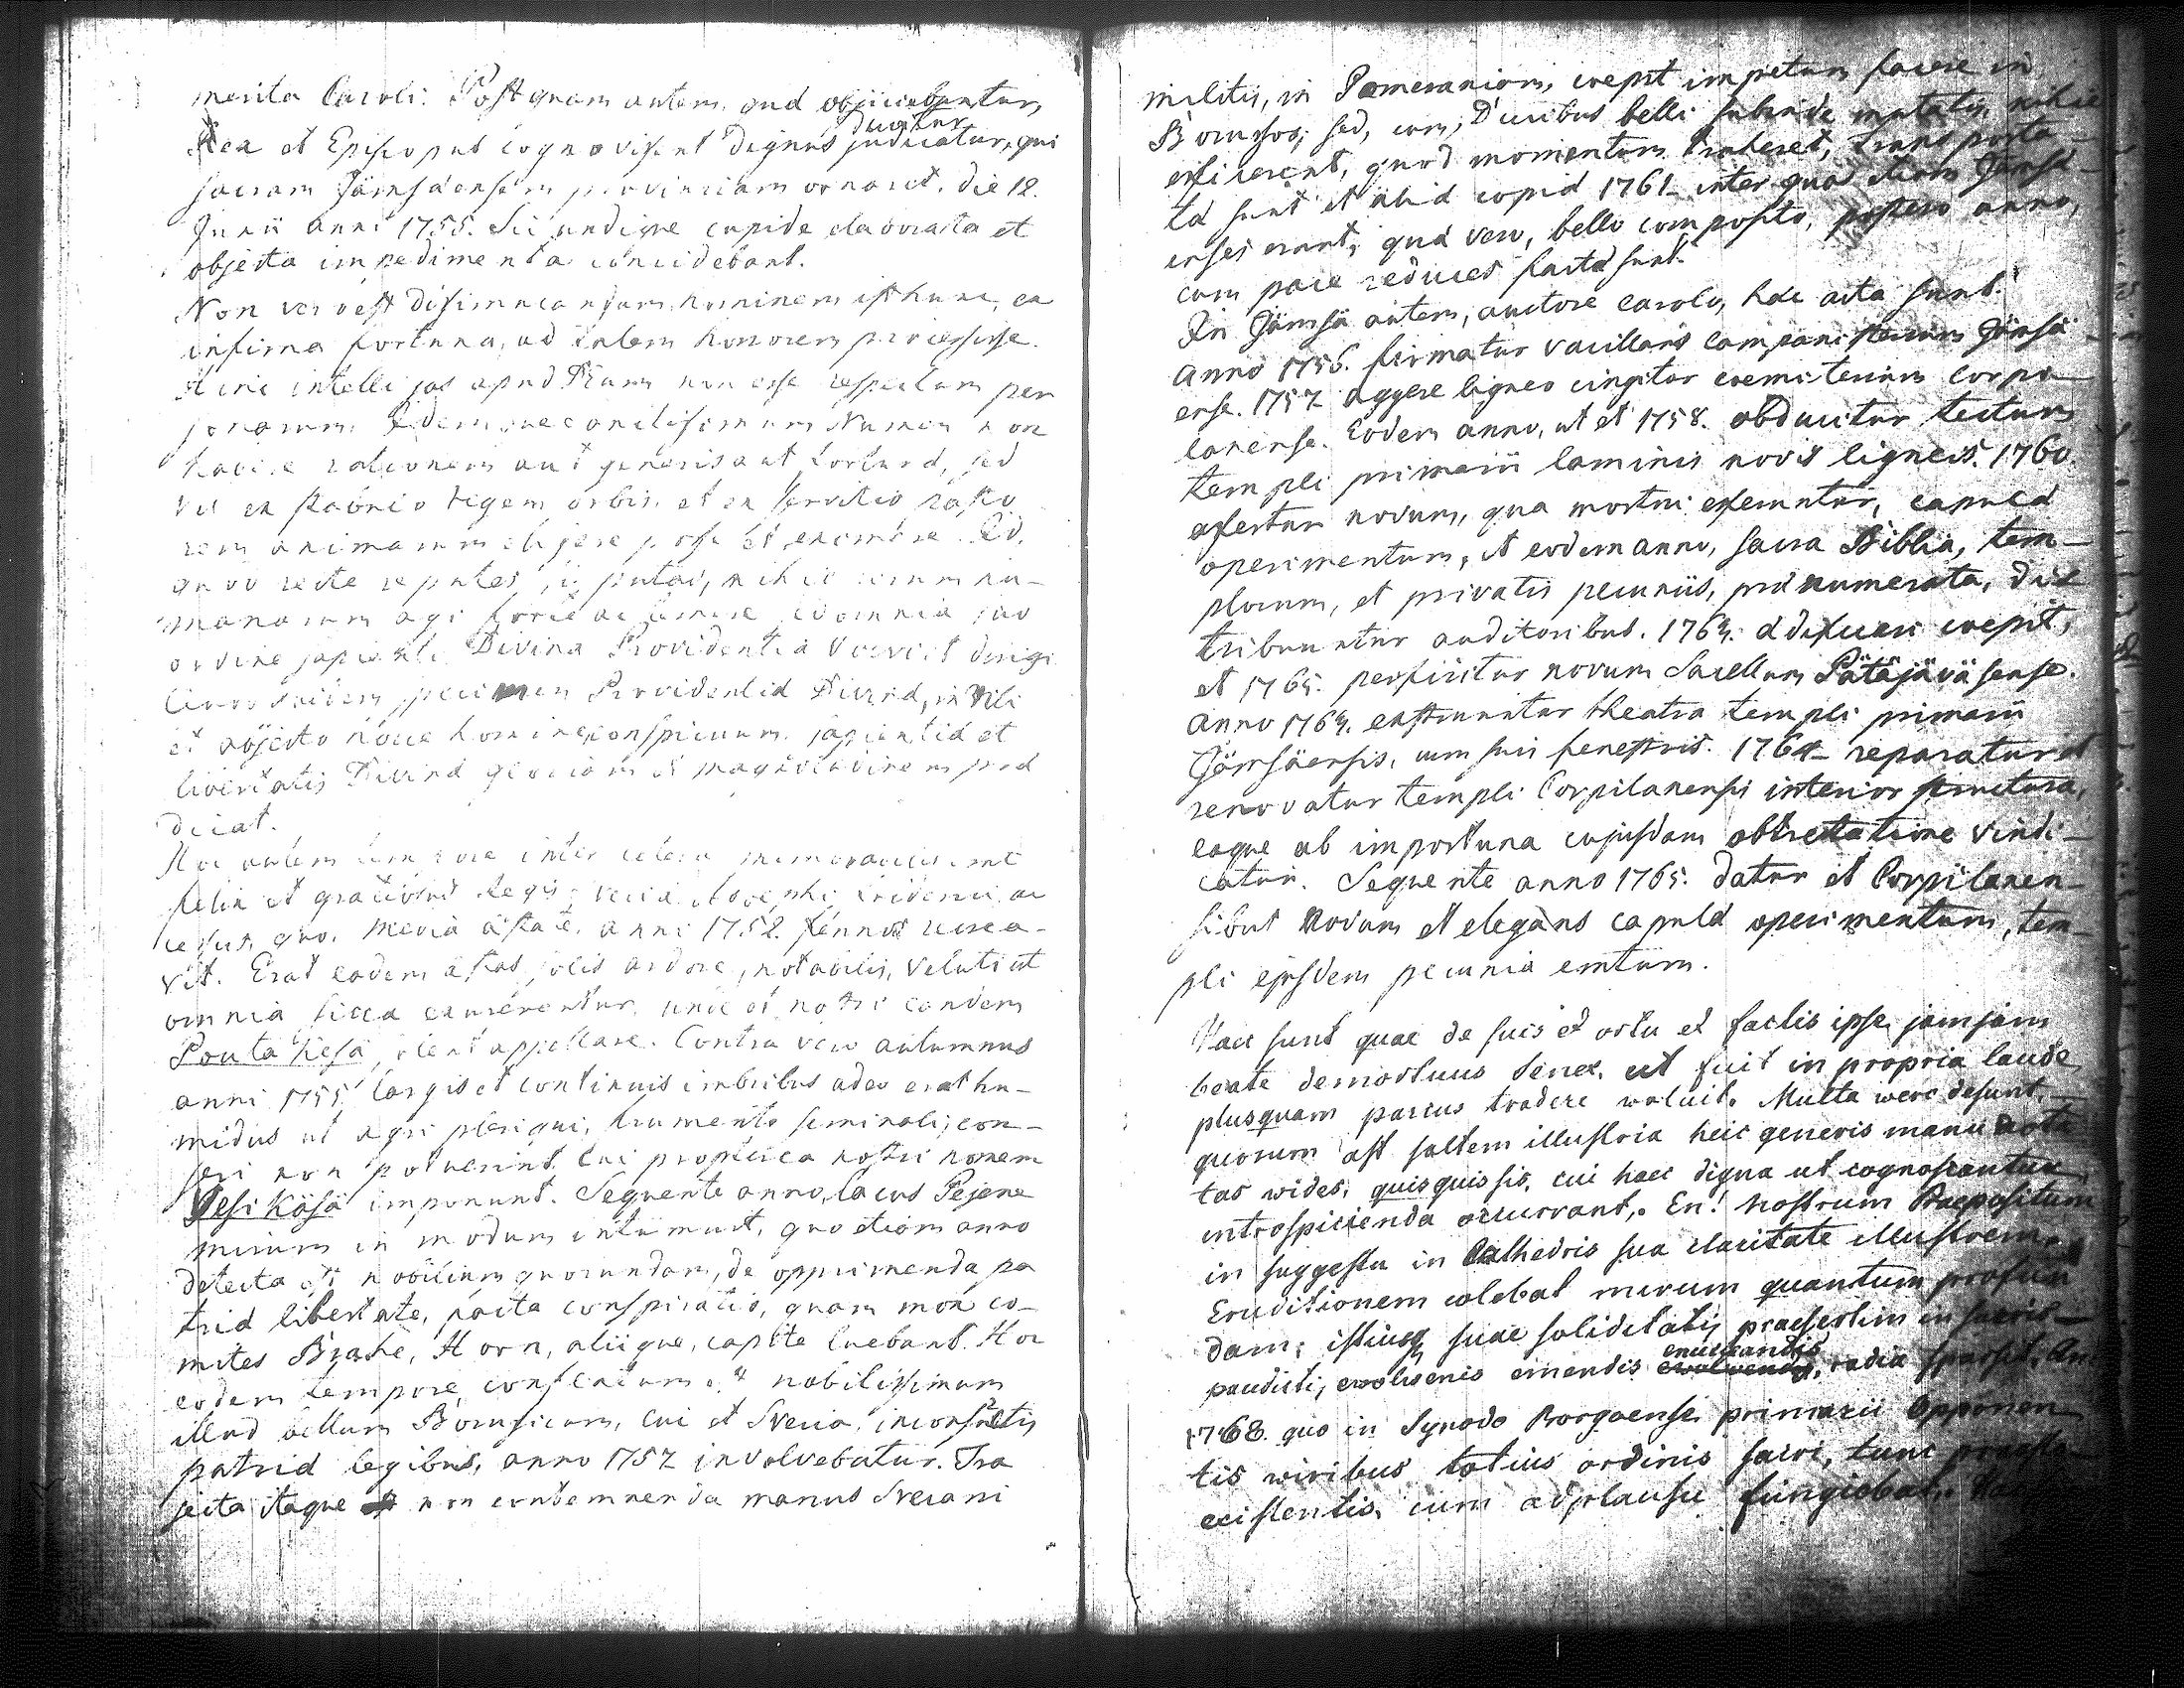 merita Caroli. Postquam autem, quæ objiciebantur,
Rex et Episcopus cognovissent dignus judicatur, qui
ducitur
sacram Jämsäensem provinciam ornaret. die 12.
Junii anni 1755. Sic undique cupide elaborata et
objecta impedimenta concidebant.
Non vero est dissimulandum, hominem isthunc, ex
infima fortuna, ad talem honorem processisse.
Hinc intelligas apud Deum non esse respectum per
sonarum. Idemque Numen non
habere rationem aut generis aut fortunæ, sed
vel ex stabulo regem orbis, et ex servitio pasto
rem animarum eligere posse et Id,
quod recte reputes, si putas, nihil rerum hu-
manarum agi forte ac temere, sed omnia suo
ordine sapienti Divina Providentia dirigi
specimen Providentiæ Divinæ, in vili
et abjecto hocce homine, conspicuum, sapientiæ et
libertatis Divinæ gloriam et magnitudinem præ
dicat.
Hoc autem tempore inter cetera memorabilis erat
felix et gratiosus Regis, ac
cessus, quo, media æstate, anni 1752. fennos recrea-
vit. Erat eadem æstas solis ardore, notabilis, veluti ut
omnia sicca unde et nostri eandem
Pouta kesä, solent appellare. Contra vero autumnus
anni 1755, largis et continuis imbribus adeo erat hu-
midus ut agri plerique, frumento seminali, con-
seri non potuerint. Cui propterea nostri nomen
Vesi Käsä imponunt. Sequente anno, lacus Pejene
mirum in modum intumuit, quo etiam anno
detecta est nobilium quorundam, de opprimenda pa
triæ libertate, facta conspiratio, quam mox co-
mites Brahe, Horn, aliique, capite luebant. Hoc
eodem tempore, conflatum est nobilissimum
illud bellum Borussicum, cui et Svecia, inconsultis
patriæ legibus, anno 1757 involvebatur. Tra
jecta itaque non contemnenda manus Svecani
militis, in Pomeraniam, coepit impetum facere in
Borussos; sed, cum, Ducibus belli subinde mutatis, nihil
efficerent, quod momentum traheret, transporta
tæ sunt et aliæ copiæ 1761 inter quas etiam Jämsä-
enses erant; quæ vero, bello composito, postero anno,
cum pace reduces factæ sunt.
In Jämsä autem, auctore Carolo, hæc acta sunt.
Anno 1756. firmatur vacillans campanisterium Jämsä
ense. 1757 aggere ligneo cingitur coemiterium Corpi
lanense. Eodem anno, ut et 1758. obducitur tectum
templi primarii laminis novis ligneis. 1760.
affertur novum, qua mortui efferuntur, capulæ
operimentum, et eodem anno, sacra Biblia, tem-
plorum, et privatis pecuniis, prænumerata, dis
tribuuntur auditoribus. 1764. ædificari coepit,
et 1765. perficitur novum Sacellum Pätäjäväsense.
Anno 1764. exstruuntur theatra templi primarii
Jämsäensis, cum suis fenestris. 1764 reparatur et
renovatur templi Corpilanensis interior structura,
eaque ab importuna cujusdam obtrectatione vindi-
catur. Sequente anno 1765. datur et Corpilanen-
sibus novum et elegans capulæ operimentum, tem-
pli ejusdem pecunia emtum.
Haec sunt quae de suis et ortu et factis ipse, jamjam
beate demortuus Senex, ut fuit in propria laude,
plusquam parcus tradere woluit. Multa wero desunt,
quorum ast saltem illustria heic generis manu nota
tas wides, quisquis sis, cui haec digna ut cognoscantur
introspicienda occurrant. En! nostrum Praepositum
in suggestu in Cathedris sua claritate illustrem.
Eruditionem colebat mirum quantum profun
dam; istiusq suae soliditatis praesertim in sacris
enucleandis
pandicti, ewolwenis emendis radia sparsit. An
1768. quo in Synodo Borgoensi primarii Opponen
tis wiribus totius ordinis sacri, tunc
existentis, cum adplausu fungiebat.